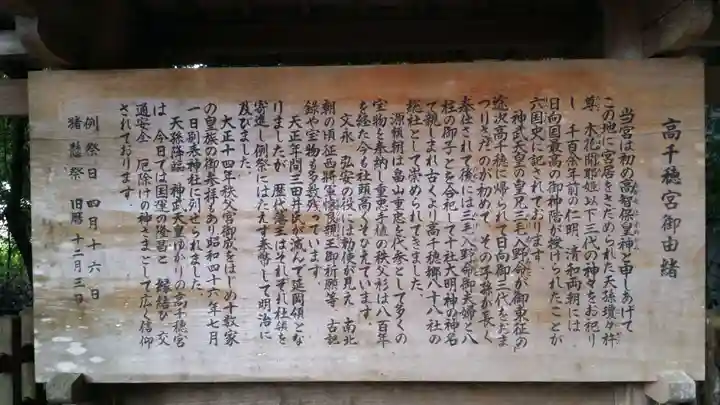 高千穂宮御由緒
当宮は初め高智保皇神と申しあげて
この地に宮居をさだめられた天孫瓊々杵
尊 木花開耶姫以下三代の神々をお祀り
し 千百余年前の仁明、清和両朝には
日向国最高の御神階が授けられたことが
六国史に記されております。
神武天皇の皇兄三毛入野命が御東征の
途次高千穂に帰られて日向御三代をおま
つりされたのが初めで その子孫が長く
奉仕されて後には三毛入野命御夫婦と八
柱の御子とを合祀して十社大明神の神名
で親しまれ古くより高千穂郷八十八社の
総社として崇められてきました。
源頼朝は畠山重忠を代参として多くの
宝物を奉納し重忠手植の秩父杉は八百年
を経た今も社頭高くそびえています。
文永、弘安の役には勅使が見え 南北
朝の頃征西将軍懐良親王御祈願等、古記
録や宝物も多数残っています。
天正年間三田井氏が滅んで延岡領とな
りましたが 歴代藩主はそれぞれ社領を
寄進し例祭にはたえず奉幣して明治に
及びました。
大正十四年秩父宮御成をはじめ十数家
の皇族の御参拝があり昭和四十六年七月
一日別表神社に列せられました。
天孫降臨 神武天皇ゆかりの高千穂宮
は 今日では国運の隆昌と 縁結び 交
通安全 厄除けの神さまとして広く信仰
されております。
例祭日 四月十六日
猪懸祭 旧暦 十二月三日